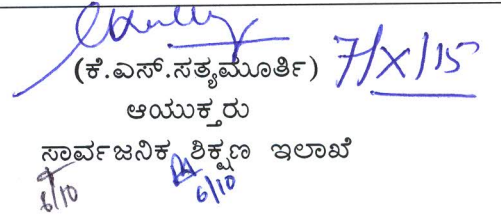 (ಕೆ.ಎಸ್.ಸತ್ಯಮೂರ್ತಿ) 7/X/15
ಆಯುಕ್ತರು
ಸಾರ್ವಜನಿಕ ಶಿಕ್ಷಣ ಇಲಾಖೆ
6/10 6/10